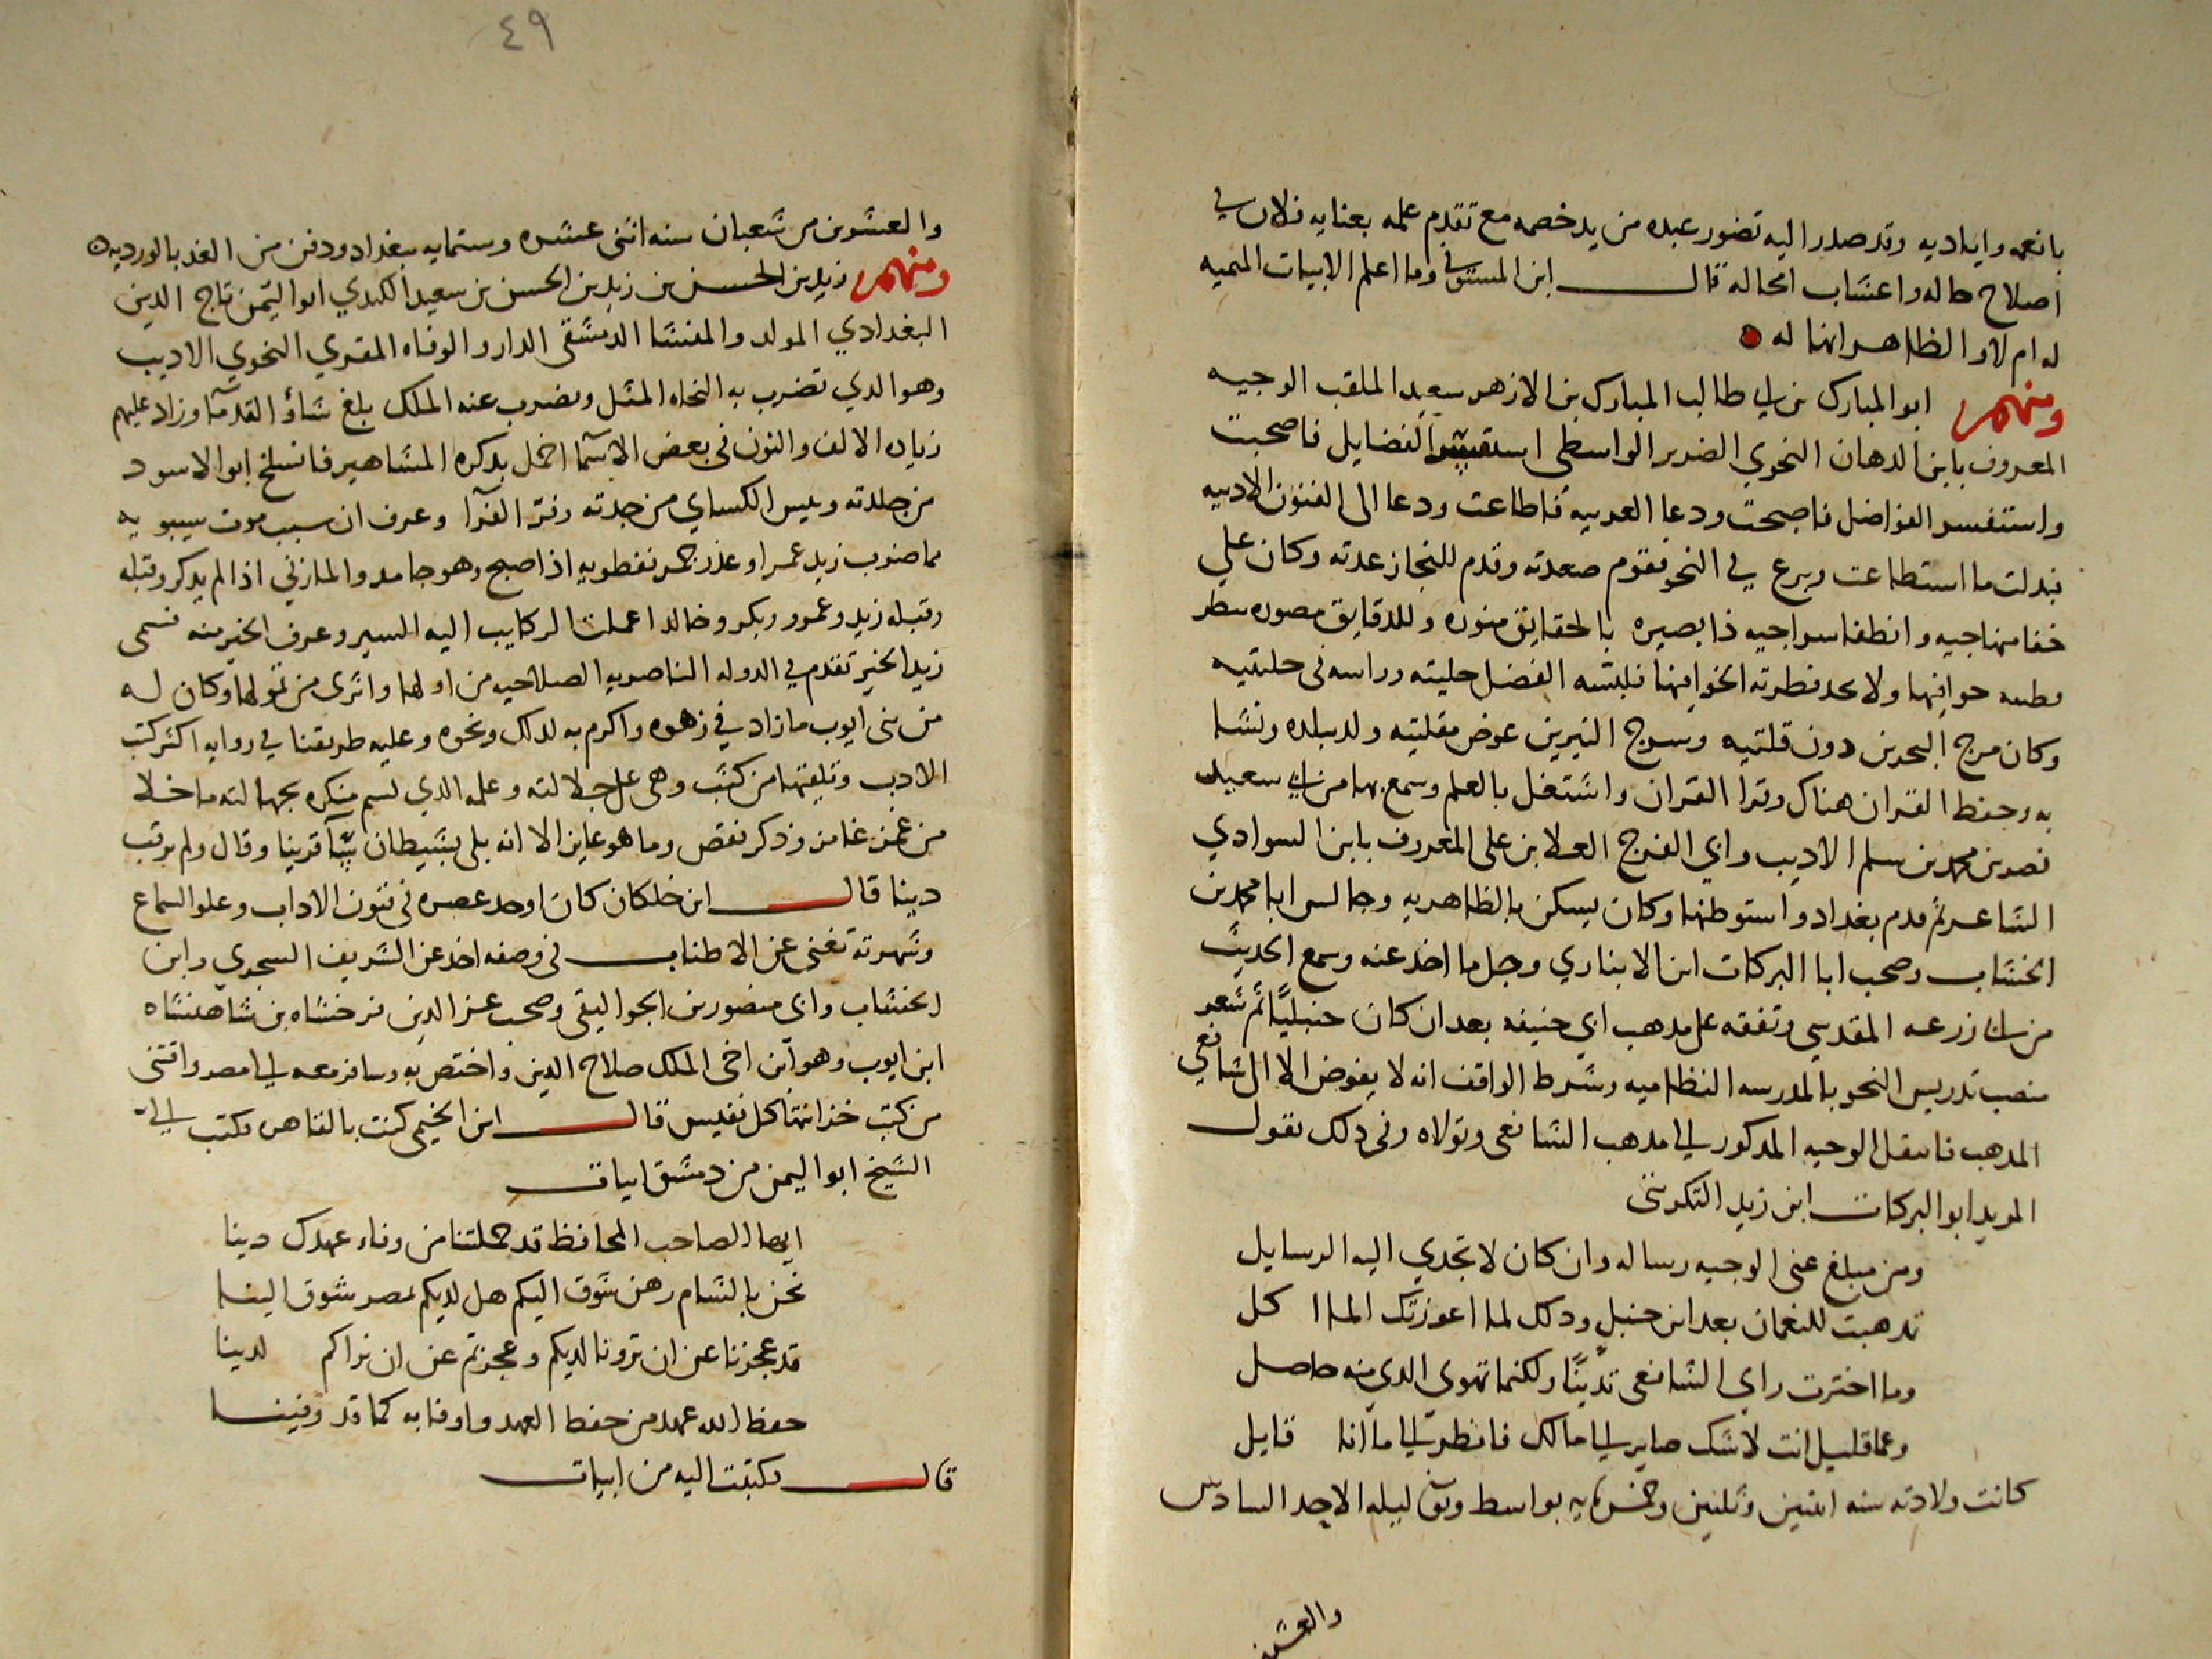 بانعمه واياديه وقد صدر اليه تضور عبده من يد خصمه مع تقدم علمه بعنايه فلان في
اصلاح حاله واعشاب امحاله قال ابن المستوفي وما اعلم الابيات الميميه
له ام لا والظاهر انها له
ومنهم ابو المبارك بن ابي طالب المبارك بن الازهر سعيد الملقب الوجيه
المعروف بابن الدهان النحوي الضرير الواسطي الفضايل فاصحبت
واستنفسر الفواضل فاصبحت ودعا العربيه فاطاعت ودعا الى الفنون الادبيه
فبدلت ما استطاعت وبرع في النحو فقوم صعدته وقدم للنجاز عدته وكان علي
خفا منهاجيه وانطفا سراجيه ذا بصيره بالحقايق منوره وللدقايق مصوره
ولا فطرته الخوافيها فلبسه الفضل حليته وراسه في حليتيه
وكان مرج البحرين دون قلتيه وسرج النيرين عوض مقلتيه ولد ببلده ونشا
به وحفظ القران هناك وقرا القران واشتغل بالعلم وسمع بها من ابي سعيد
نصر بن محمد بن سلم الاديب وابي الفرج العلا بن علي المعروف بابن السوادي
الشاعر ثم قدم بغداد واستوطنها وكان يسكن بالظاهريه وجالس ابا محمد بن
الخشاب وصحب ابا البركات ابن الانباري وجل ما اخذ عنه وسمع الحديث
من ابي زرعه المقدسي وتفقه على مذهب ابي حنيفه بعد ان كان حنبليا ثم شعر
منصب تدريس النحو بالمدرسه النظاميه وشرط الواقف انه لا يفوض الا الى شافعي
المذهب فانتقل الوجيه المذكور الى مذهب الشافعي وتولاه وفي ذلك يقول
المويد ابو البركات ابن زيد التكريتي
ومن مبلغ عني الوجيه رساله وان كان لا تجدي اليه الرسايل
تمذهبت للنعمان بعد ابن حنبل وذلك لما اعوزتك الماكل
وما اخترت راي الشافعي تدينا ولكنما تهوي الذي منه حاصل
وعما قليل انت لا شك صاير الى مالك فانظر الى ما انا قايل
كانت ولادته سنه اثنين وثلثين وخمسمايه بواسط وتوفي ليله الاحد السادس
والعشرين
٤٩
والعشرين من شعبان سنه اثنى عشره وستمايه ببغداد ودفن من الغد بالورديه
ومنهم زيد بن الحسن بن زيد بن الحسن بن سعيد الكندي ابو اليمن تاج الدين
البغدادي المولد والمنشا الدمشقي الدار والوفاه المقري النحوي الاديب
وهو الذي تضرب به النحاه المثل ويضرب عنه الملك بلغ شاو القدما وزاد عليهم
زياده الالف والنون في بعض الاسما اخمل بذكره المشاهير فانسلخ ابو الاسود
من جلدته ويئس الكساي من جدته وفر الفرا وعرف ان سبب موت سيبويه
مما ضرب زيد عمرا وعذر نفطويه اذا اصبح وهو جامد والمازني اذا لم يذكر وقبله
وقبله زيد وعمرو وبكر وخالد اعملت الركايب اليه السير وعرف الخير منه فسمي
زيد الخير تقدم في الدوله الناصريه الصلاحيه من اولها واثرى من تمولها وكان له
من بني ايوب ما زاد في زهوه واكرم به لذلك ونحوه وعليه طريقنا في روايه اكثر كتب
الادب وتلقيتها من كثب وهي على جلالته وعلمه الذي لسم منكره بجهالته ما خلا
من غمز غامز وذكر نقص وما هو عايز الا انه بلي بشيطان قرينا وقال ولم يرقب
دينا قال ابن خلكان كان اوحد عصره في فنون الاداب وعلو السماع
وشهرته تغني عن الاطناب في وصفه اخذ عن الشريف الشجري وابن
الخشاب وابي منصور بن الجواليقي وصحب عز الدين فرخشاه بن شاهنشاه
ابن ايوب وهو ابن اخي الملك صلاح الدين واختص به وسافر معه الى مصر واقتنى
من كتب خزانتها كل نفيس قال ابن الخيمي كنت بالقاهره فكتب الي
الشيخ ابو اليمن من دمشق ابيات
ايها الصاحب المحافظ قد حملتنا من وفاء عهدك دينا
نحن بالشام رهن شوق اليكم هل لديكم بمصر شوق الينا
قد عجزنا عن ان ترونا لديكم وعجزتم عن ان نراكم لدينا
حفظ الله عهد من حفظ العهد واوفا به كما قد وفينا
قال فكتبت اليه من ابيات